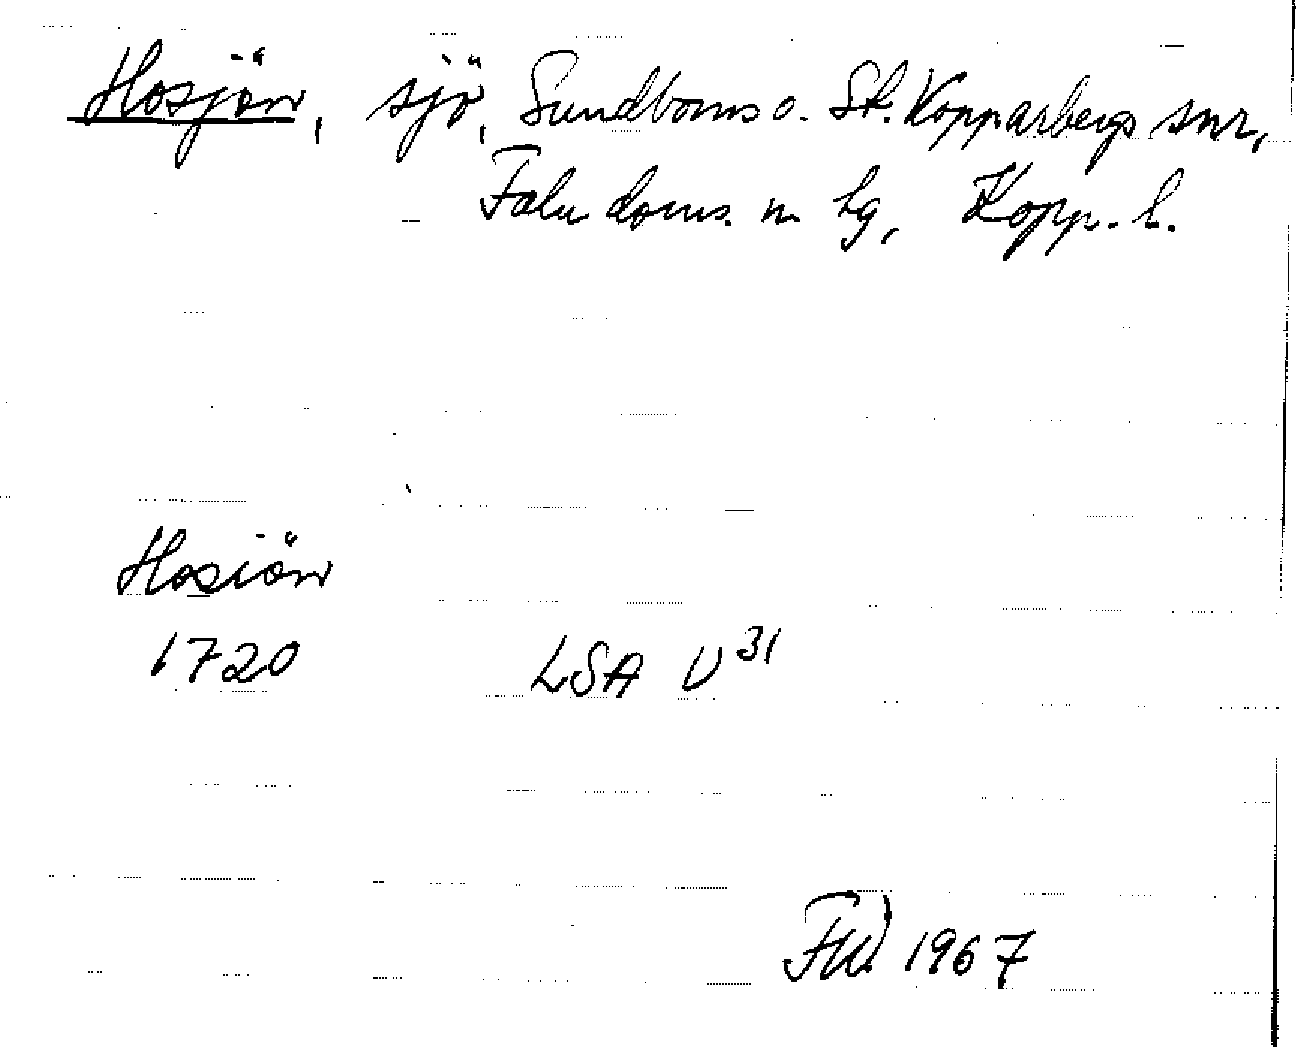 Hosjön, sjö, Sundborns o. St. Kopparbergs snr,
Falu doms. n. lg, Kopp. l.
Hosiön
1720 LSA U 31
1967